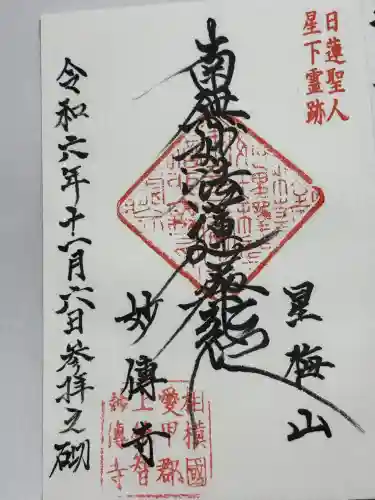 日蓮聖人
星下霊跡
星梅山
南無妙法蓮華経
妙傳寺
令和六年十一月六日参拝之砌
相模國
愛甲郡
上依智
妙傳寺